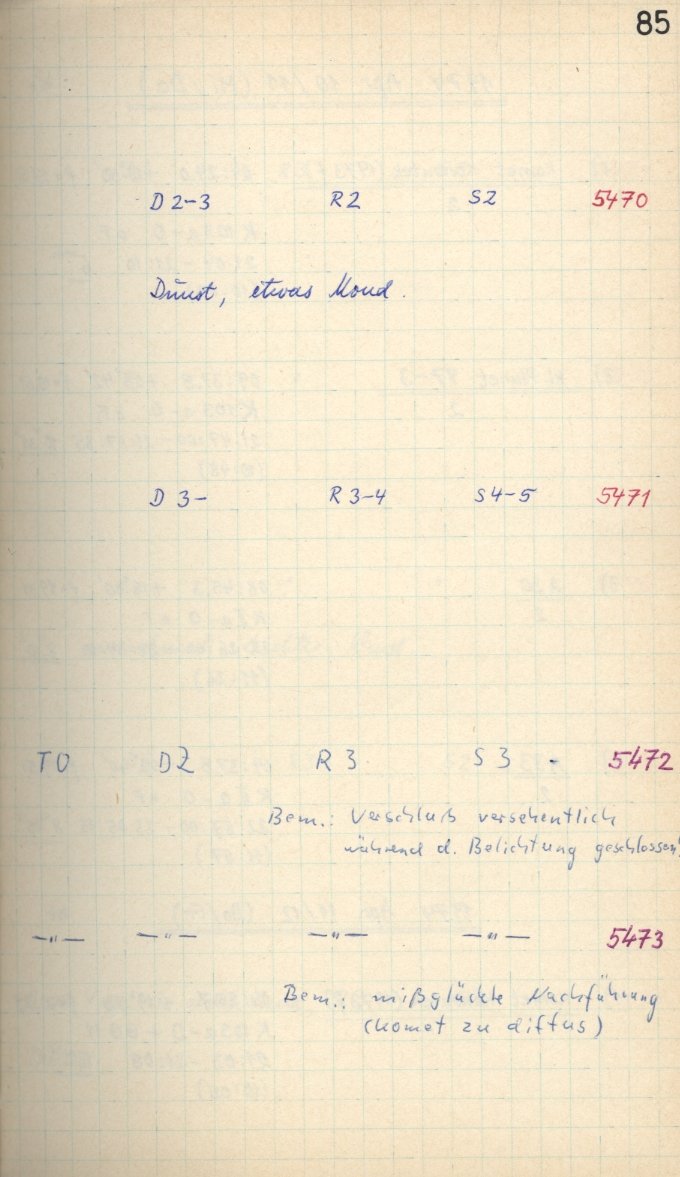 85
D 2-3 R2 S2 5470
Dunst, etwas Mond.
D 3- R 3-4 S 4-5 5471
T0 D2 R 3 S 3 - 5472
Bem.: Verschluß versehentlich
während d. Belichtung geschlossen!
—"— —"— —"— —"— 5473
Bem.: mißglückte Nachführung
(Komet zu diffus)